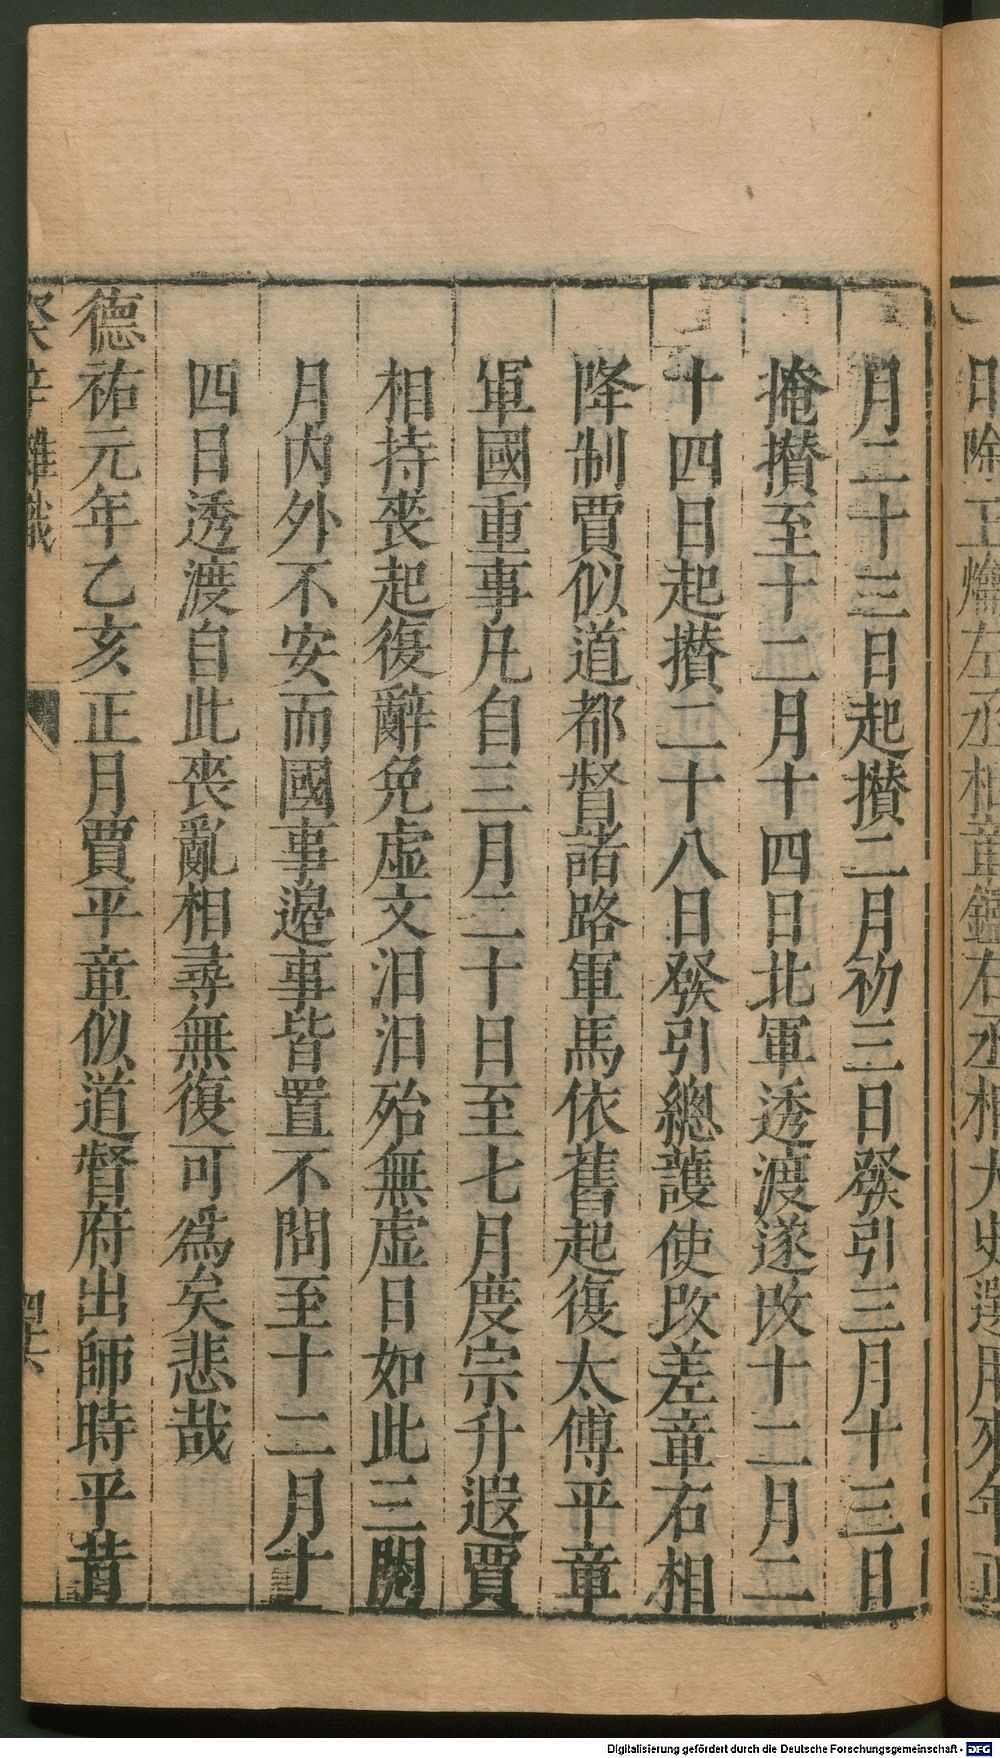 月二十三日起攅二月初三日發引三月十三日
掩攅至十二月十四日北軍透渡遂改十二月二
十四日起攅二十八日發引總護使改差章右相
降制賈似道都督諸路軍馬依舊起復太傅平章
軍國重事凡自三月二十日至七月度宗升遐賈
相持喪起復辭免虛文汨汨殆無虛日如此三閱
月內外不安而國事邉事皆置不問至十二月十
四日透渡自此喪亂相尋無復可爲矣悲哉
德祐元年乙亥正月賈平章似道督府出師時平昔
癸辛雜識
Digitalisierung gefördert durch die Deutsche Forschungsgemeinschaft - DFG